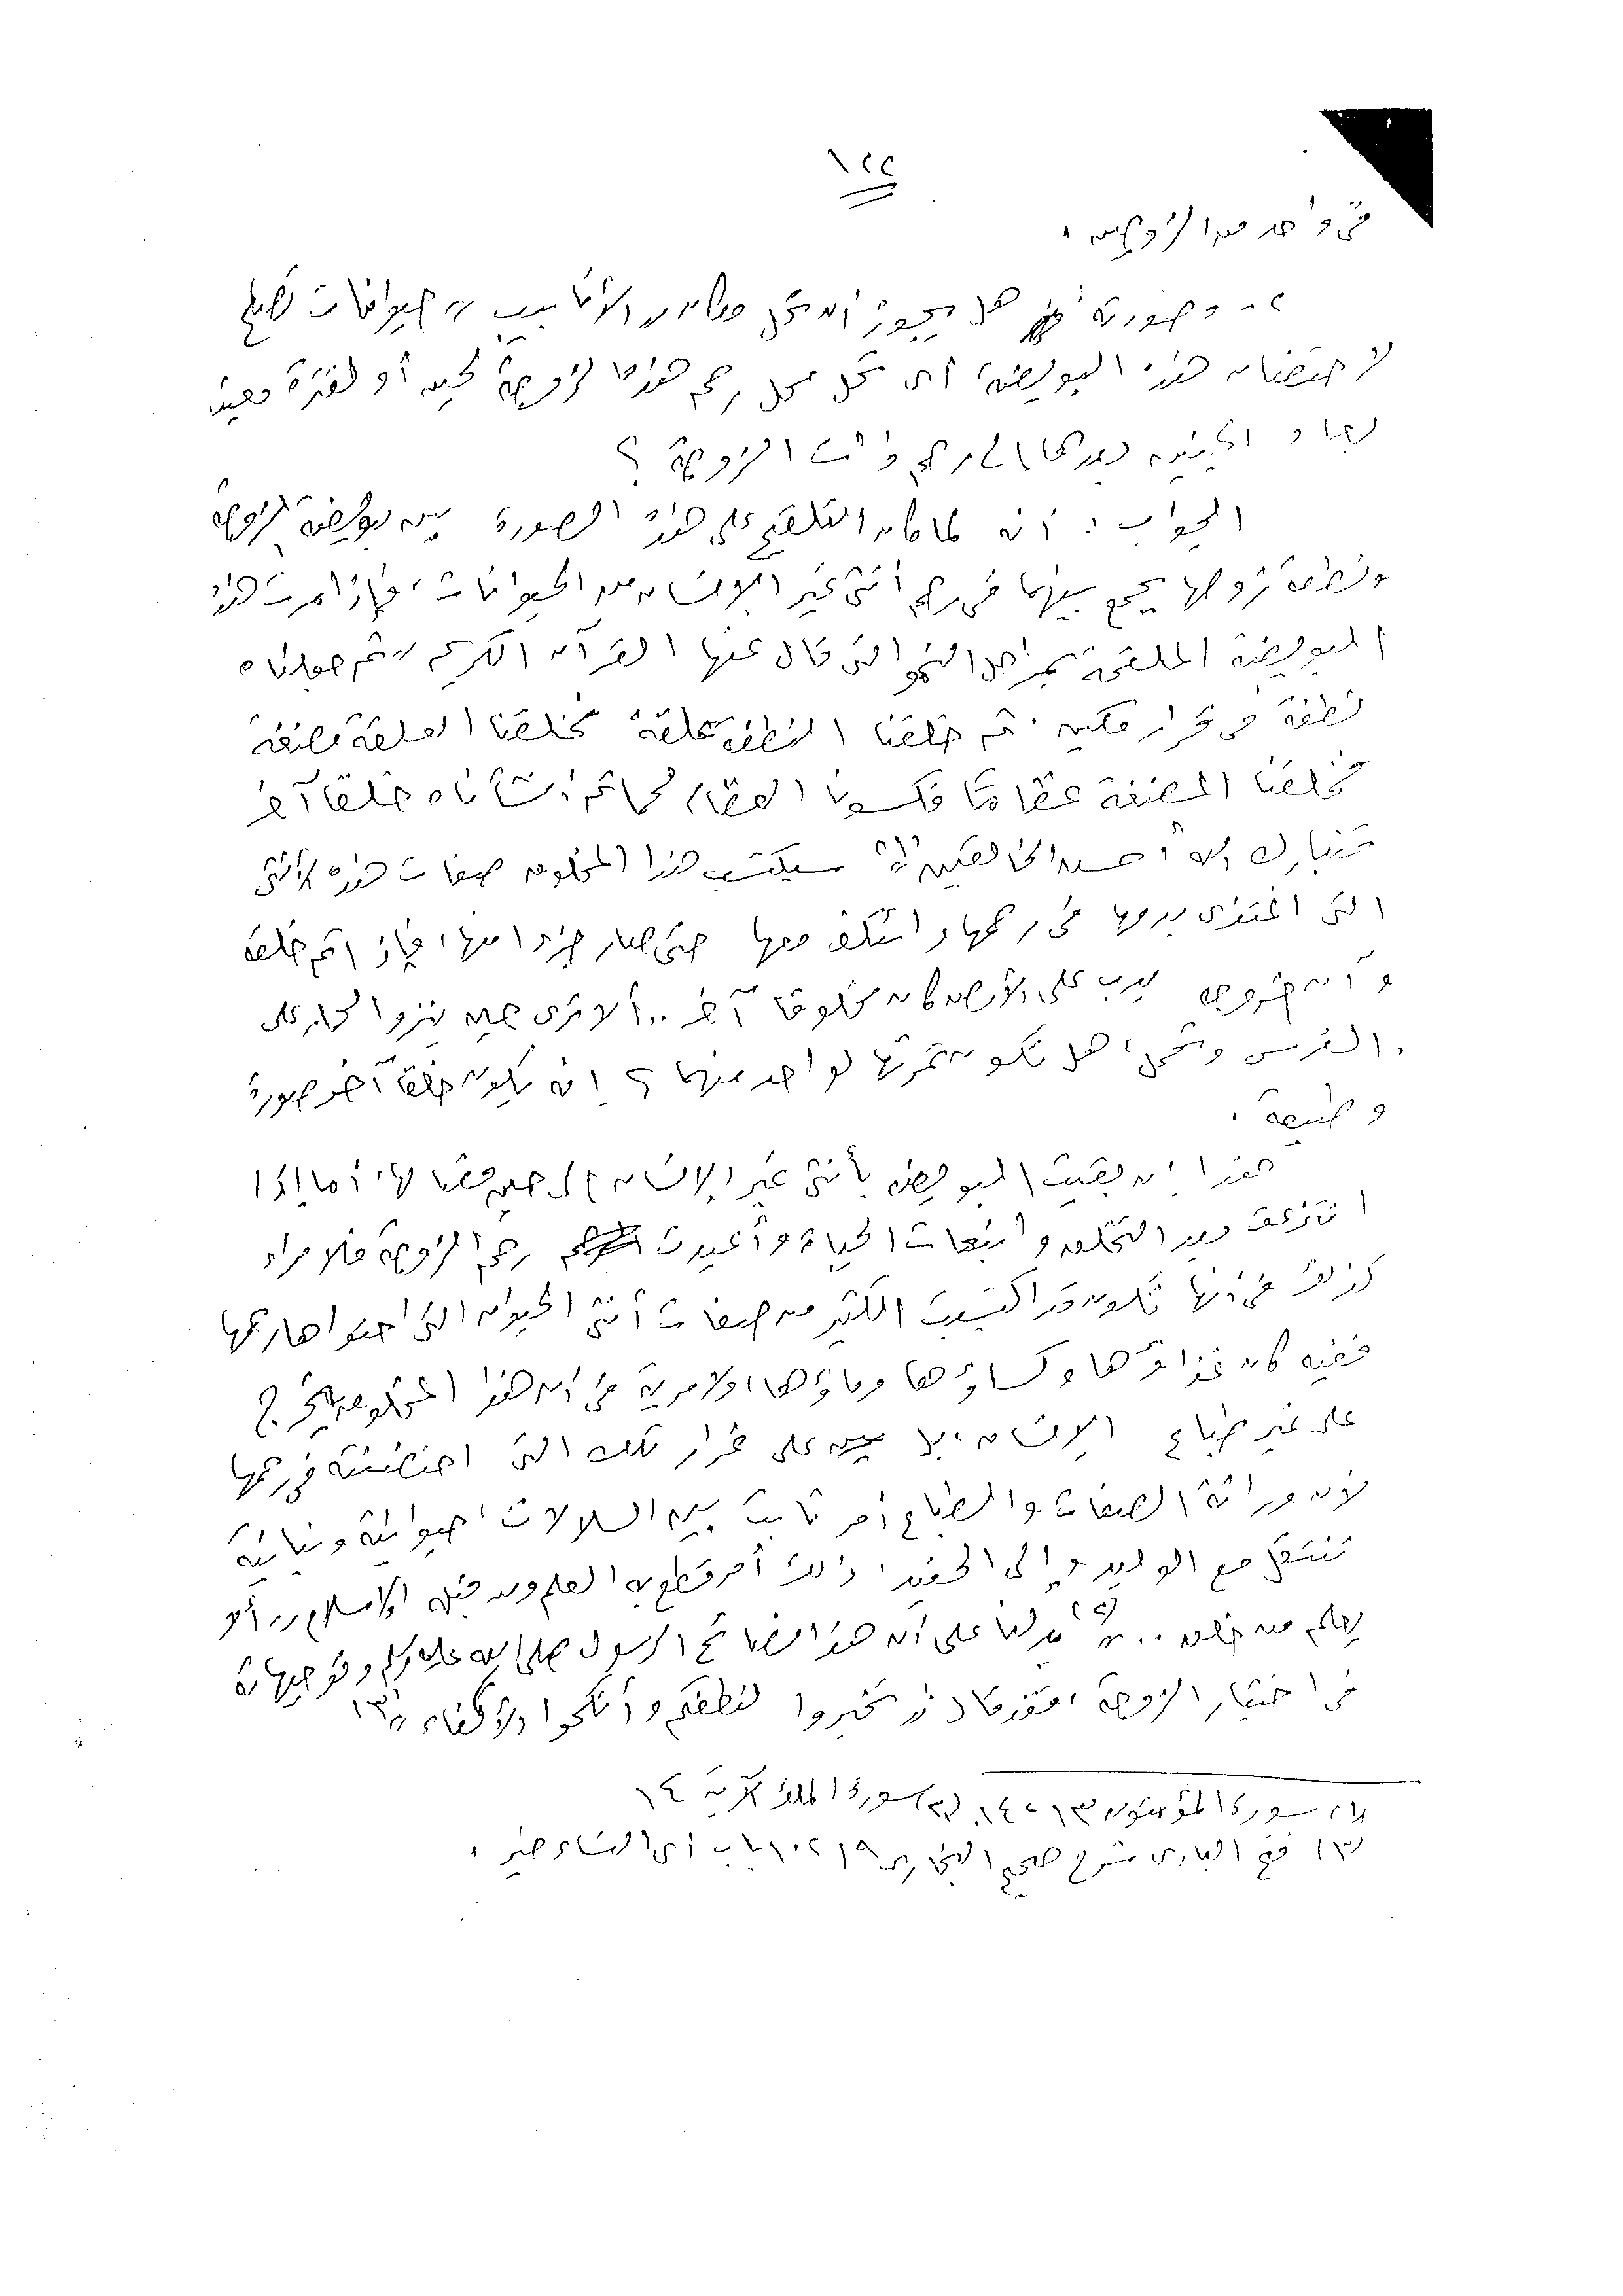 ١٢٢
فى واحد من الزوجين .
٢- وصورته هل يجوز أن تحل مكان الأنابيب " حيوانات تصلح
لاحتضان هذه البويضة، أى تحل محل رحم هذه الزوجة لحين أو لفترة معينة
يعاد الجنين بعدها إلى رحم ذات الزوجة ؟
الجواب : أنه لما كان التلقيح على هذه الصورة بين بويضة الزوجة
ونطفة زوجها يجمع بينهما فى رحم أنثى غير الإنسان من الحيوانات، فإذا مرت هذه
البويضة الملقحة بمراحل النمو التى قال عنها القرآن الكريم " ثم جعلناه
نطفة فى قرار مكين . ثم خلقنا النطفة علقة فخلقنا العلقة مضغة
فخلقنا المضغة عظاما فكسونا العظام لحما ثم أنشأناه خلقا آخر
فتبارك الله أحسن الخالقين "(١) سيكتسب هذا المخلوق صفات هذه الأنثى
التى اغتذى بدمها فى رحمها وائتلف معها حتى صار جزءا منها، فإذا تم خلقه
وآن خروجه يدب على الأرض كان مخلوقا آخر .. ألا ترى حين ينزو الحمار على
الفرس وتحمل، هل تكون ثمرتها لواحد منهما ؟ إنه يكون خلقا آخر صورة
وطبيعة .
هذا إن بقيت البويضة بأنثى غير الإنسان إلى حين فصالها، أما إذا
انتزعت بعد التخلق وانبعاث الحياة وأعيدت رحم الزوجة فلا مراء
كذلك فى أنها تكون قد اكتسبت الكثير من صفات أنثى الحيوان التى احتواها رحمها
ففيه كان غذاؤها وكساؤها وماؤها، ولا مرية فى أن هذا المخلوق يخرج
على غير طباع الإنسان، بل على غرار تلك التى احتضنته فى رحمها
لأن وراثة الصفات والطباع أمر ثابت بين السلالات حيوانية ونباتية
تنتقل مع الوليد وإلى الحفيد، ذلك أمر قطع به العلم ومن قبله الإسلام " ألا
يعلم من خلق .. "(٢) يدلنا على أن هذا نصائح الرسول صلى الله عليه وسلم وتوجيهاته
فى اختيار الزوجة، فقد قال " تخيروا لنطفكم وأنكحوا الأكفاء "(٣)
(١) سورة المؤمنون ١٣ ، ١٤ (٢) سورة الملك الآية ١٤
(٣) فتح البارى شرح صحيح البخارى ٩ / ١٠٢ باب أى النساء خير .